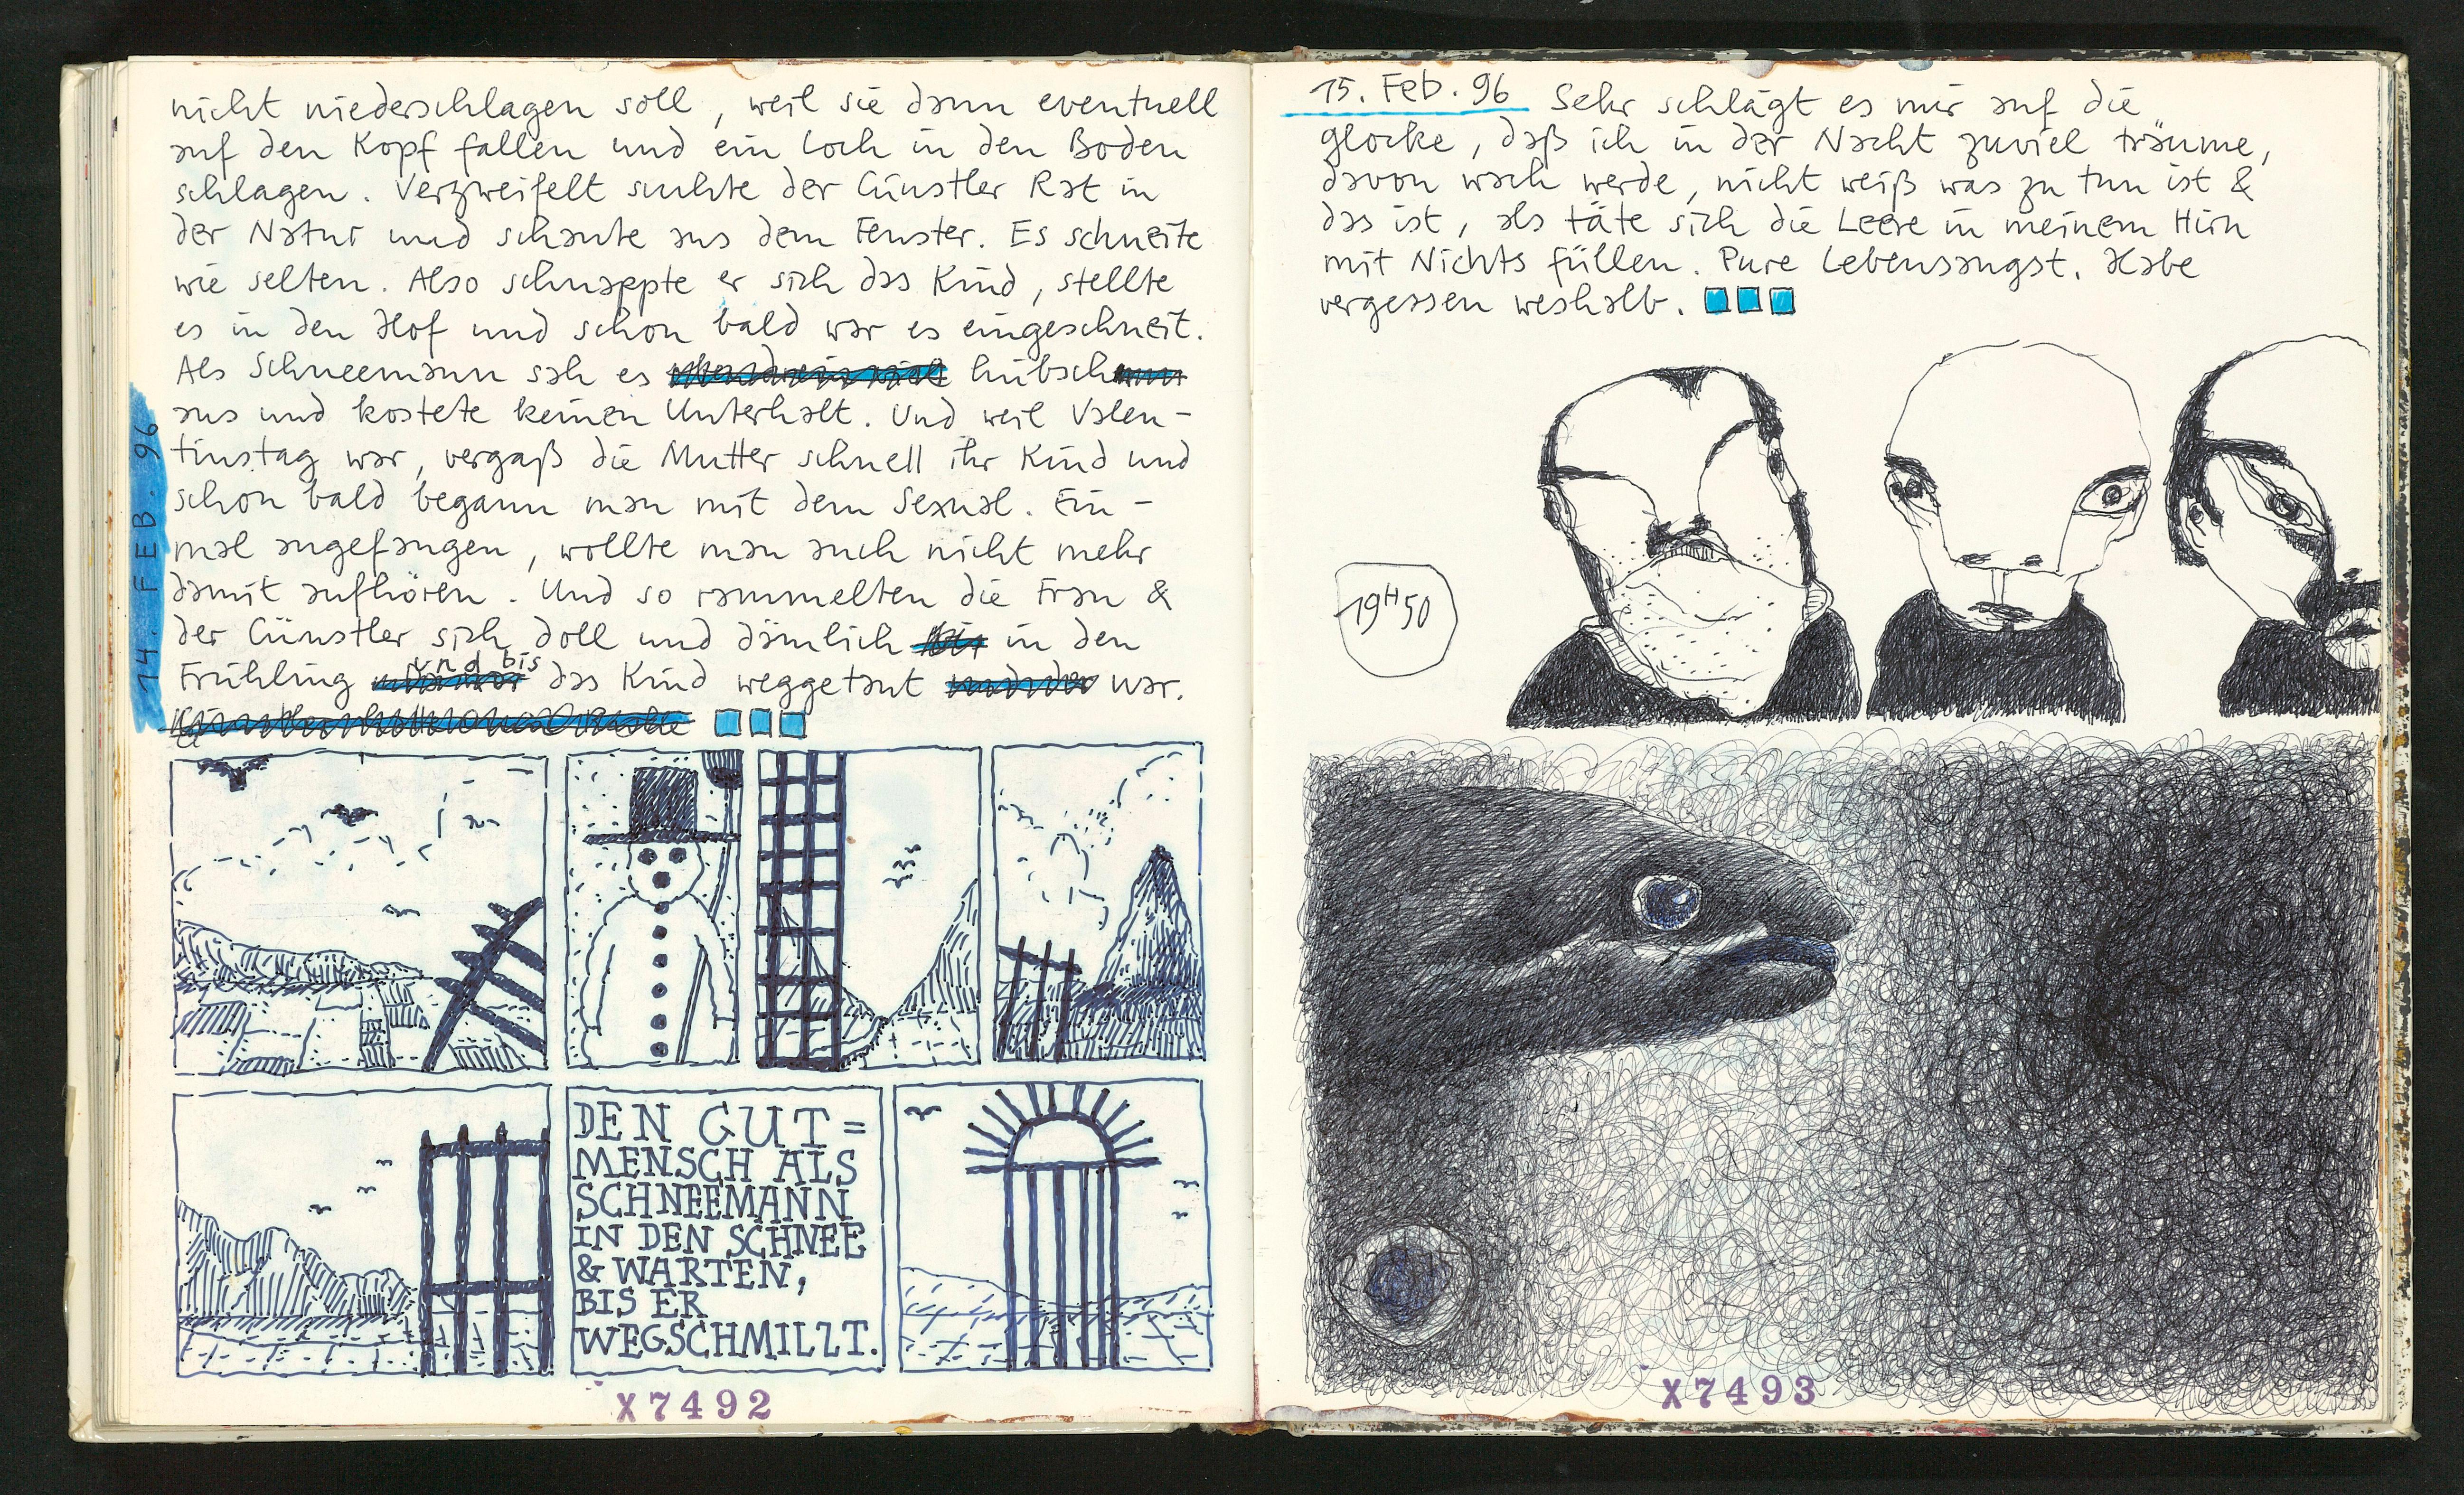 nicht niederschlagen soll, weil sie dann eventuell
auf den Kopf fallen und ein Loch in den Boden
schlagen. Verzweifelt suchte der Cünstler Rat in
der Natur und schaute aus dem Fenster. Es schneite
wie selten. Also schnappte er sich das Kind, stellte
es in den Hof und schon bald war es eingeschneit.
Als Schneemann sah es hübsch
aus und kostete keinen Unterhalt. Und weil Valen-
tinstag war, vergaß die Mutter schnell ihr Kind und
schon bald begann man mit dem Sexual. Ein-
mal angefangen, wollte man auch nicht mehr
damit aufhören. Und so rammelten die Frau &
der Cünstler sich doll und dämlich in den
Frühling und bis das Kind weggetaut war.
14. FEB. 96
DEN GUT=
MENSCH ALS
SCHNEEMANN
IN DEN SCHNEE
& WARTEN,
BIS ER
WEGSCHMILZT.
X7492
15. Feb. 96 Sehr schlägt es mir auf die
glocke, daß ich in der Nacht zuviel träume,
davon wach werde, nicht weiß was zu tun ist &
das ist, als täte sich die Leere in meinem Hirn
mit Nichts füllen. Pure Lebensangst. Habe
vergessen weshalb.
19H50
X7493